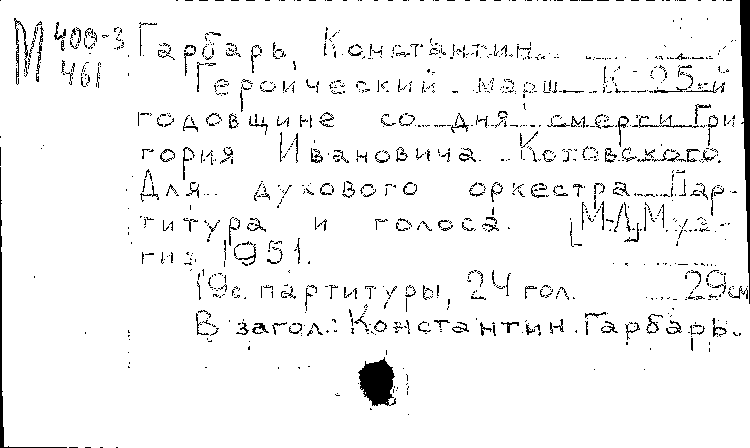 М 400-3
461
Гарбарь, Константин.
Героический марш. К 25-й
годовщине со дня смерти Гри-
гория Ивановича Котовского.
Для духового оркестра. Пар-
титура и голоса. [М-Л] Муз-
гиз, 1951.
19с. партитуры, 24 гол. 29см
В загол.: Константин Гарбарь.